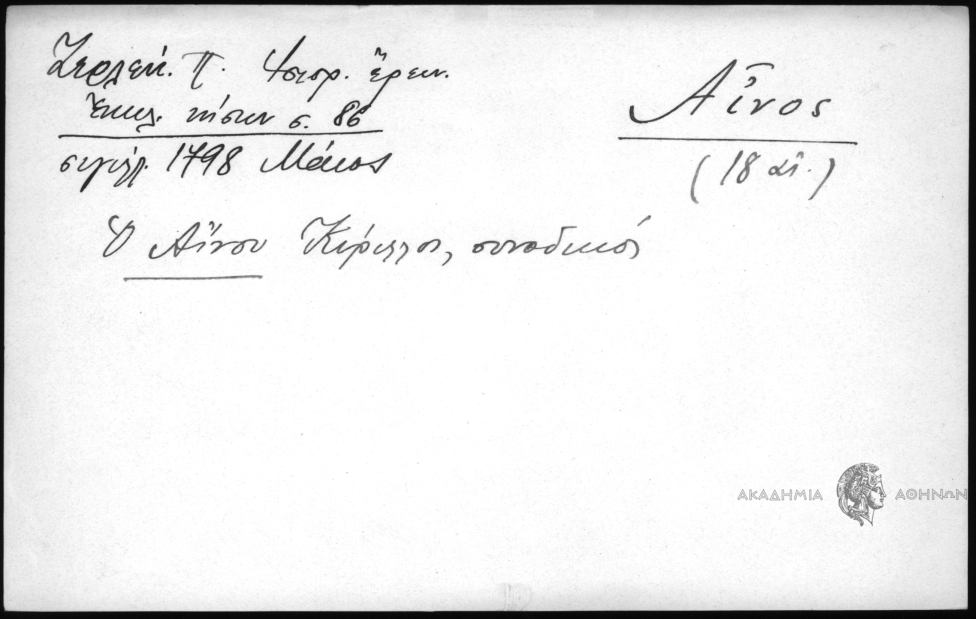 Ζερλέν. Π. Ἱστορ. ἔρευν.
Ἐκκλ. νήσων σ. 86
σιγίλλ. 1798 Μάιος
Αἶνος
(18 αἰ.)
Ὁ Αἴνου Κύριλλος, συνοδικός
ΑΚΑΔΗΜΙΑ ΑΘΗΝΩΝ